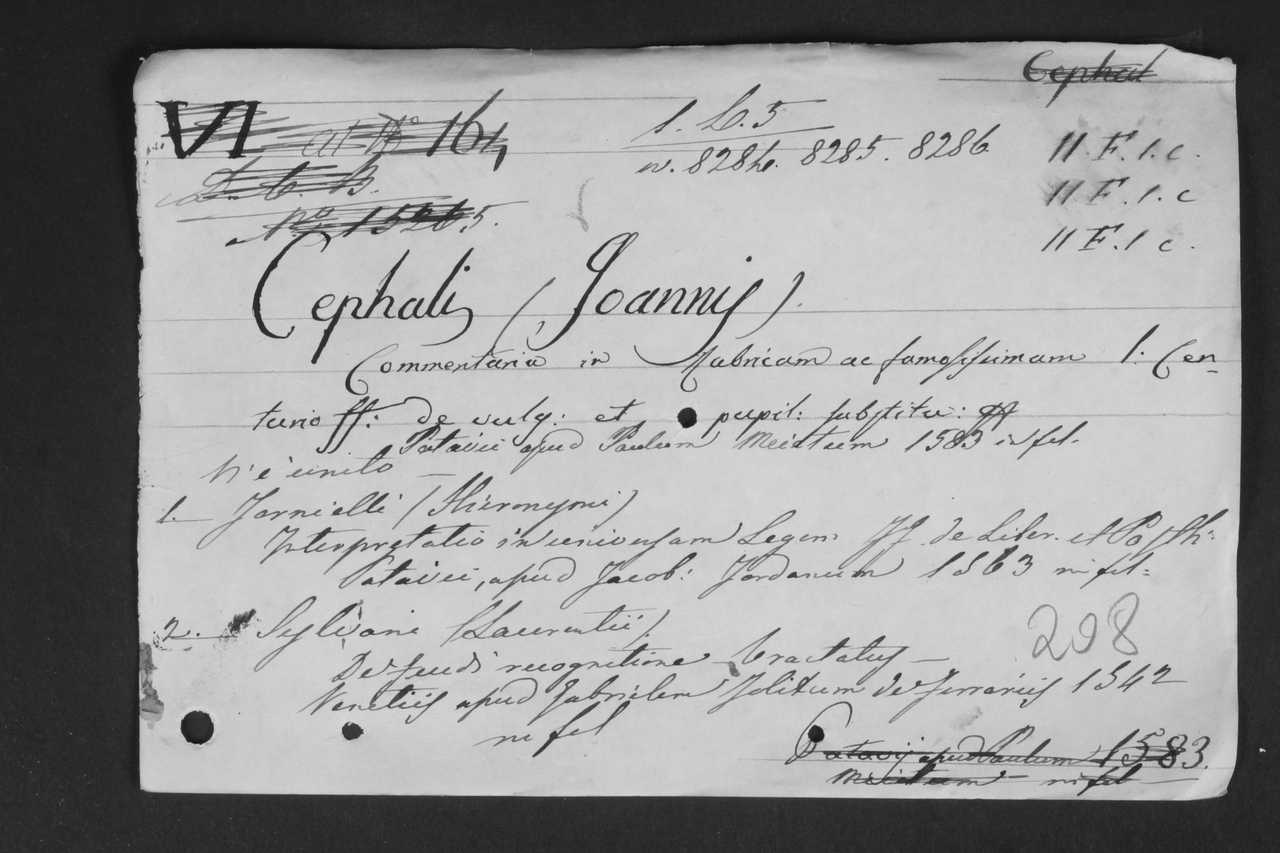 Cephal
VI al No 164
1. C. 5
n. 8284. 8285. 8286
11. F. 1. c.
11 F. 1. c
11 F. 1 c.
No 15265.
Cephali (Joannis).
Commentaria in Rubricam ac famosissimam l: Cen-
turio ff: de vulg: et pupil: substitu:
Patavii apud Paulum Meietum 1583 in fol.
V'è unito —
1. Jornielli (Hieronymi)
Interpretatio in universam Legem ff. de Liber. et Posth:
Patavii, apud Jacob: Jordanum 1563 in fol:
2. Sylvani (Laurentii)
De feudi recognitione tractatus —
Venetiis apud Gabrielem Jolitum de Ferrariis 1542
in fol
208
Patavij apud Paulum 1583.
Meietum in fol